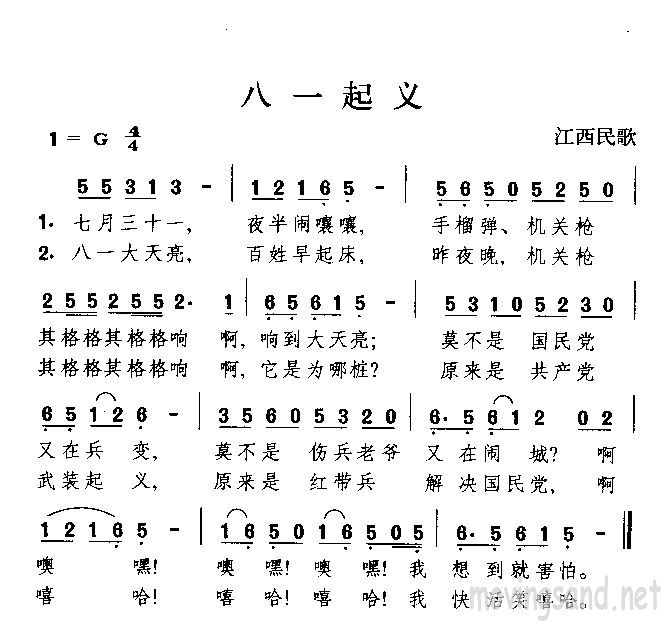 八一起义
1=G 4/4 江西民歌
5 5 3 1 3 - | 1 2 1 6 5 - | 5 6 5 0 5 2 5 0 |
1. 七月三十一, 夜半闹嚷嚷, 手榴弹、机关枪
2. 八一大天亮, 百姓早起床, 昨夜晚, 机关枪
2 5 5 2 5 5 5 2· 1 | 6 5 6 1 5 - | 5 3 1 0 5 2 3 0 |
其格格其格格响 啊, 响到大天亮; 莫不是 国民党
其格格其格格响 啊, 它是为哪桩? 原来是 共产党
6 5 1 2 6 - | 3 5 6 0 5 3 2 0 | 6· 5 6 1 2 0 2 |
又在兵 变, 莫不是 伤兵老爷 又在闹 城? 啊
武装起 义, 原来是 红带兵 解决国民党, 啊
1 2 1 6 5 - | 1 6 5 0 1 6 5 0 5 | 6· 5 6 1 5 - ||
噢 嘿! 噢 嘿! 噢 嘿! 我 想到就害怕。
嘻 哈! 嘻 哈! 嘻 哈! 我 快活笑嘻哈。
movingsand.net